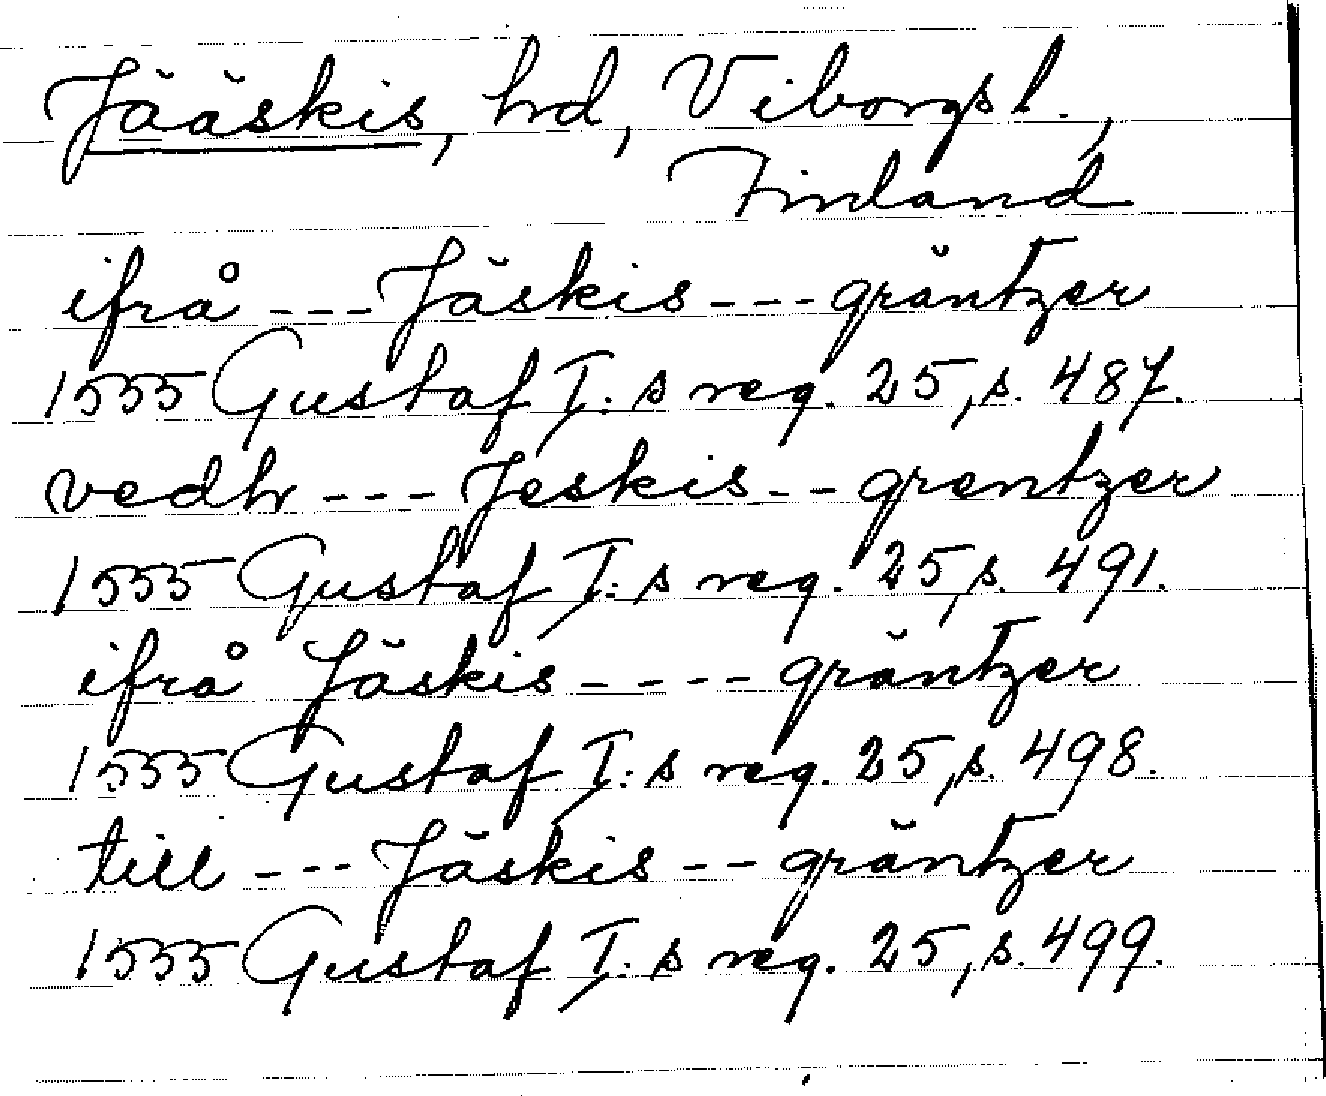 Jääskis, hd, Viborgs l.,
Finland
ifrå --- Jäskis --- gräntzer
1555 Gustaf I:s reg. 25, s. 487.
vedhr --- Jeskis -- grentzer
1555 Gustaf I:s reg. 25, s. 491.
ifrå Jäskis ---- gräntzer
1555 Gustaf I:s reg. 25, s. 498.
till --- Jäskis -- gräntzer
1555 Gustaf I:s reg. 25, s. 499.